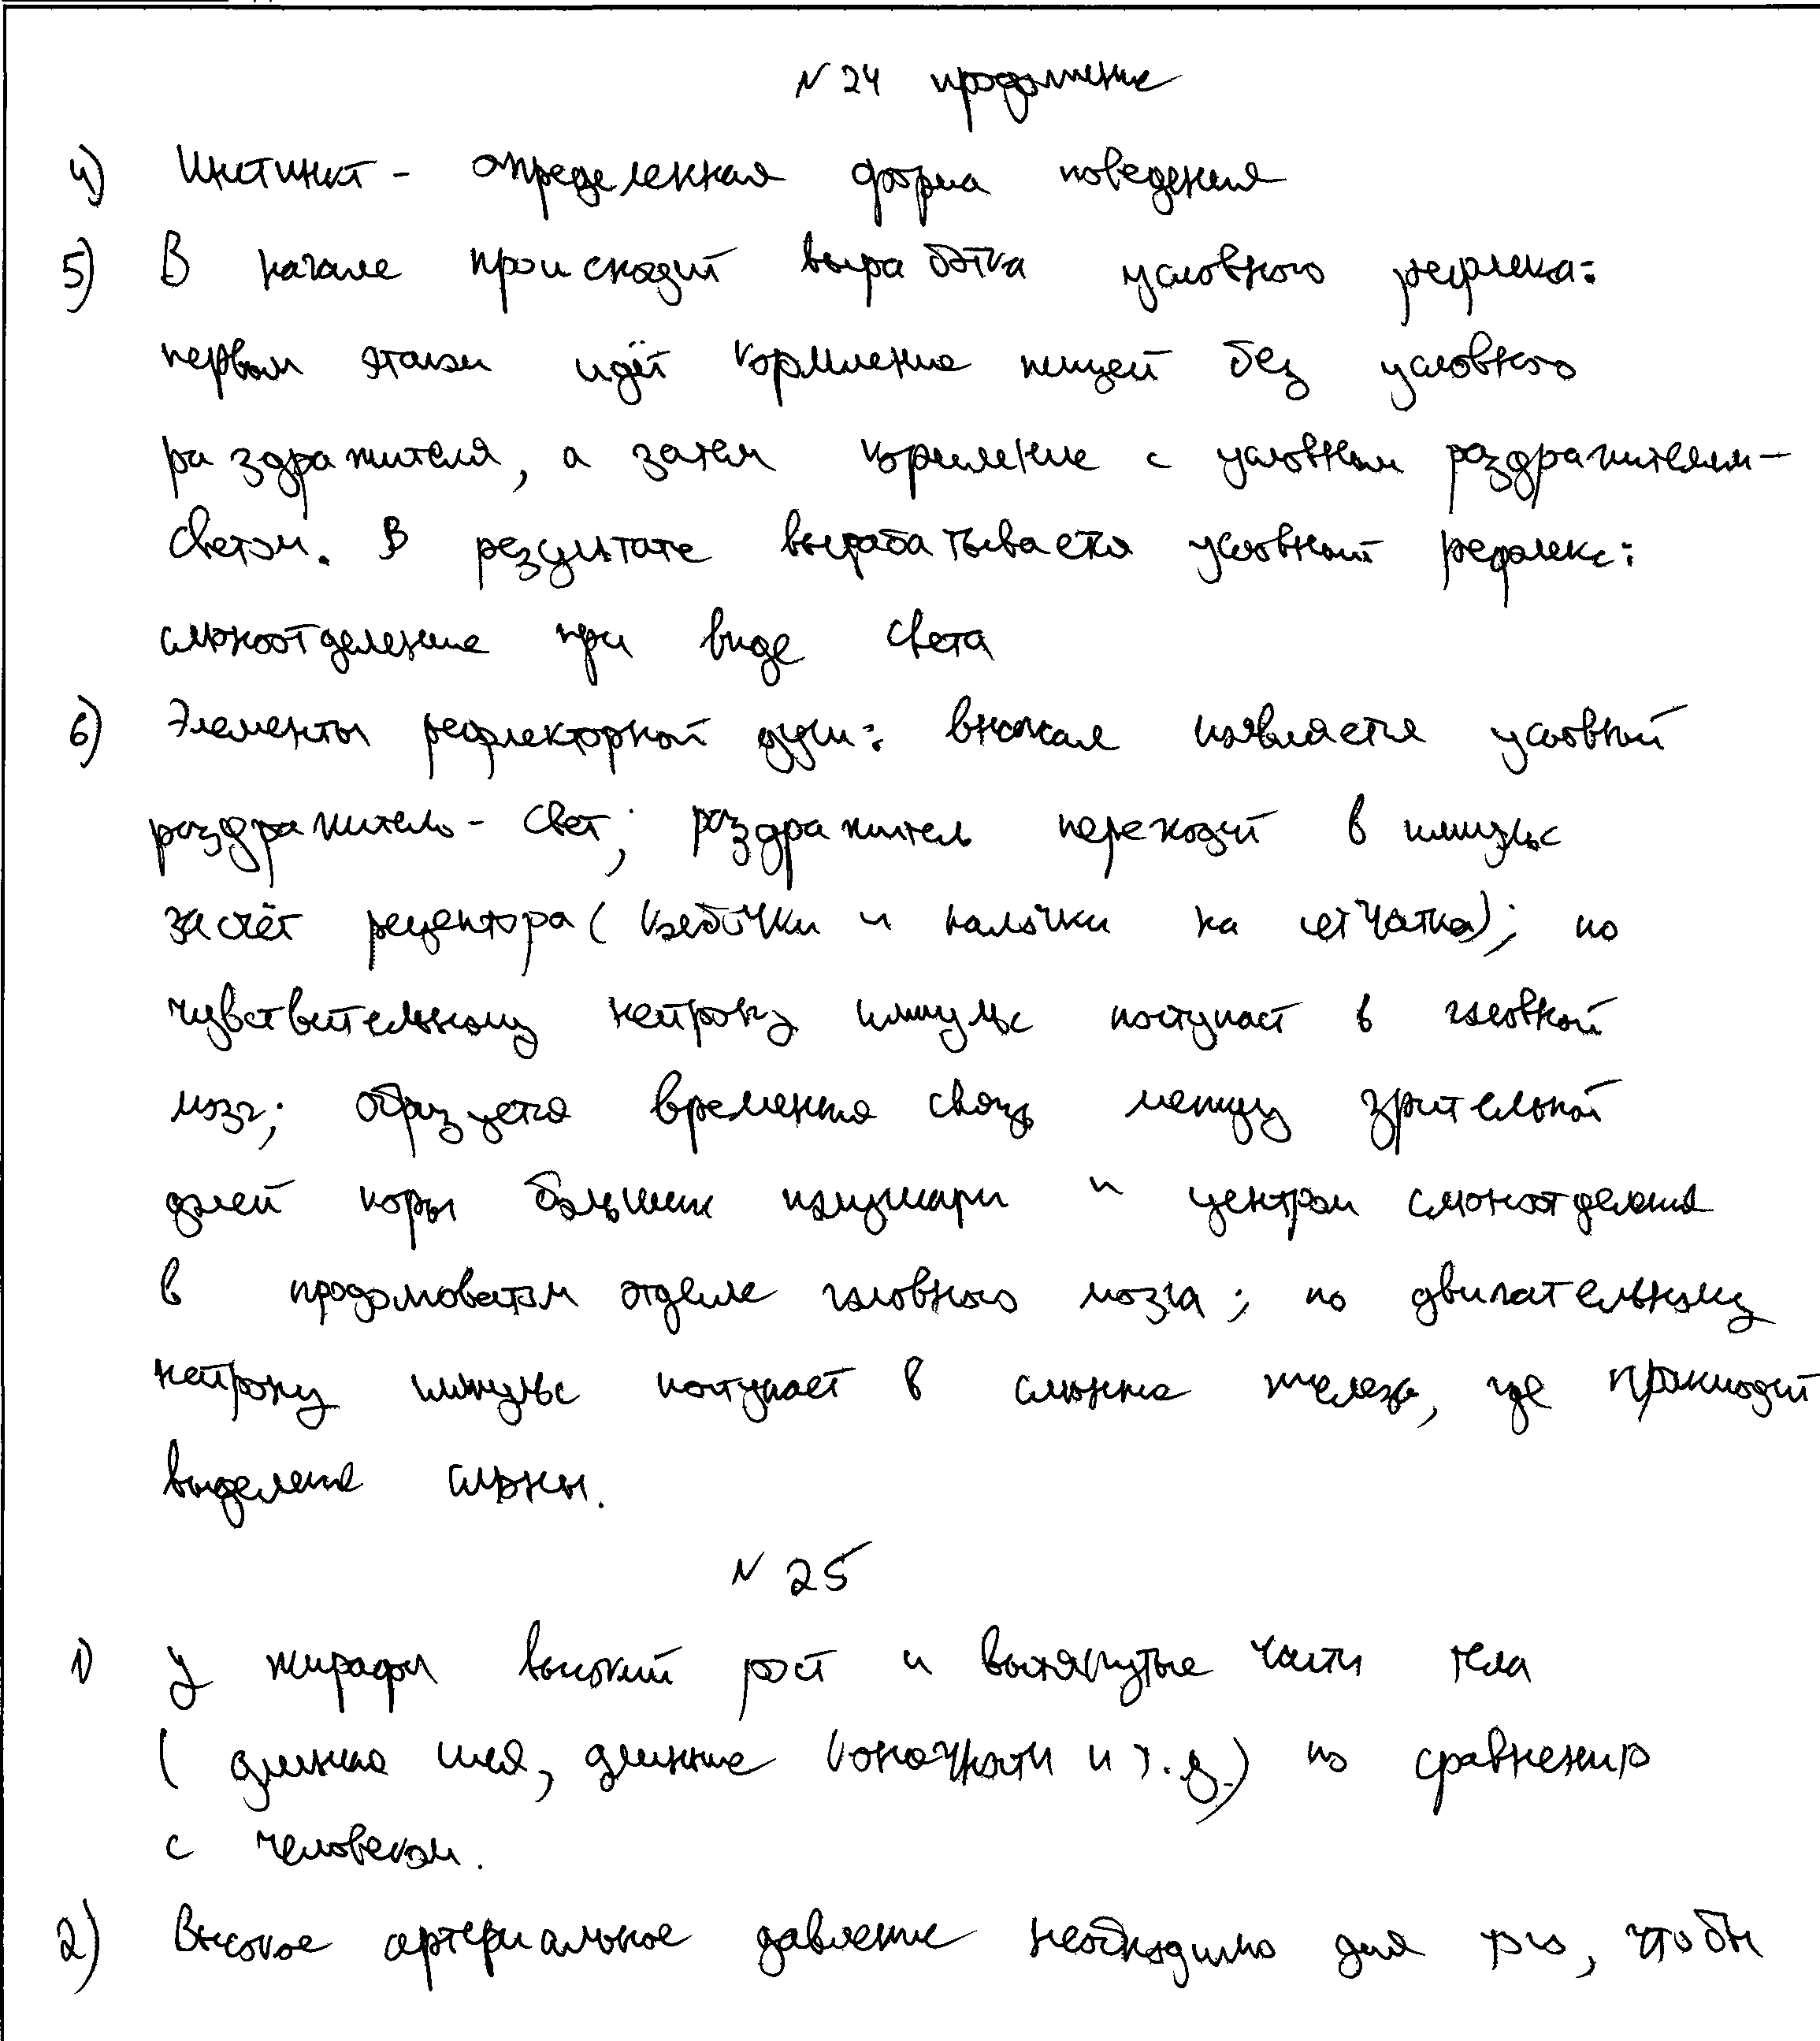 N 24 продолжение
4) Инстинкт - определенная форма поведения
5) В начале происходит выработка условного рефлекса:
первым этапом идёт кормление пищей без условного
раздражителя, а затем кормление с условным раздражителем -
светом. В результате вырабатывается условный рефлекс:
слюноотделение при виде света
6) Элементы рефлекторной дуги: вначале появляется условный
раздражитель - свет; раздражитель переходит в импульс
за счёт рецептора (колбочки и палочки на сетчатке); по
чувствительному нейрону импульс поступает в головной
мозг; образуется временная связь между зрительной
долей коры больших полушарий и центром слюноотделения
в продолговатом отделе головного мозга; по двигательному
нейрону импульс поступает в слюнные железы, где происходит
выделение слюны.
N 25
1) У жирафы высокий рост и вытянутые части тела
(длинная шея, длинные конечности и т.д.) по сравнению
с человеком.
2) Высокое артериальное давление необходимо для того, чтобы